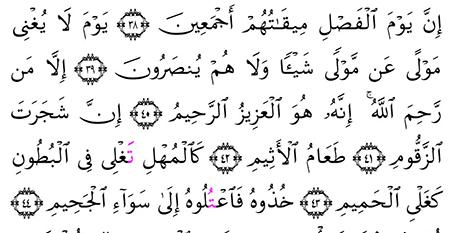 إِنَّ يَوْمَ ٱلْفَصْلِ مِيقَٰتُهُمْ أَجْمَعِينَ ٣٨ يَوْمَ لَا يُغْنِى
مَوْلًى عَن مَّوْلًى شَيْـًٔا وَلَا هُمْ يُنصَرُونَ ٣٩ إِلَّا مَن
رَّحِمَ ٱللَّهُ ۚ إِنَّهُۥ هُوَ ٱلْعَزِيزُ ٱلرَّحِيمُ ٤٠ إِنَّ شَجَرَتَ
ٱلزَّقُّومِ ٤١ طَعَامُ ٱلْأَثِيمِ ٤٢ كَٱلْمُهْلِ تَغْلِى فِى ٱلْبُطُونِ
كَغَلْىِ ٱلْحَمِيمِ ٤٣ خُذُوهُ فَٱعْتُلُوهُ إِلَىٰ سَوَآءِ ٱلْجَحِيمِ ٤٤